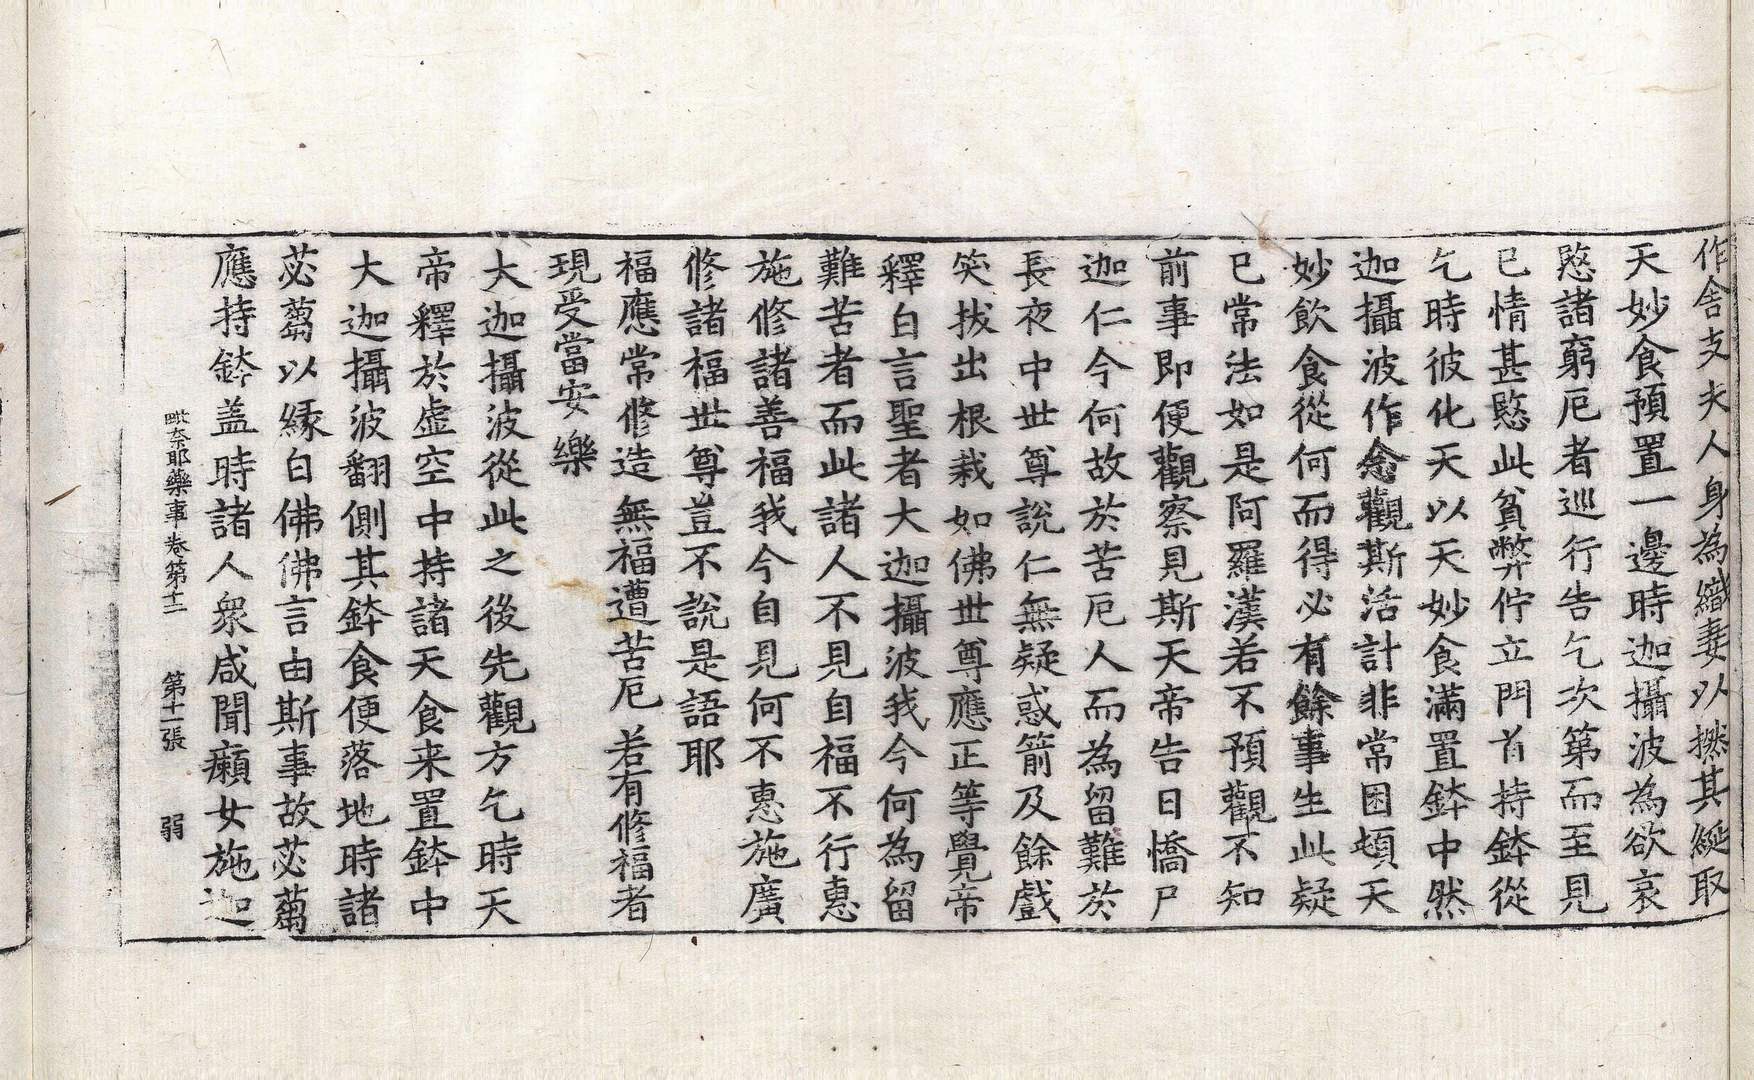 作舍支夫人身為織妻以撚其綖取
天妙食預置一邊時迦攝波為欲哀
愍諸窮厄者巡行告乞次第而至見
已情甚愍此貧弊佇立門首持鉢從
乞時彼化天以天妙食滿置鉢中然
迦攝波作念觀斯活計非常困頓天
妙飲食從何而得必有餘事生此疑
已常法如是阿羅漢若不預觀不知
前事即便觀察見斯天帝告曰憍尸
迦仁今何故於苦厄人而為留難於
長夜中世尊說仁無疑惑箭及餘戲
笑拔出根栽如佛世尊應正等覺帝
釋白言聖者大迦攝波我今何為留
難苦者而此諸人不見自福不行惠
施修諸善福我今自見何不惠施廣
修諸福世尊豈不說是語耶
福應常修造 無福遭苦厄 若有修福者
現受當安樂
大迦攝波從此之後先觀方乞時天
帝釋於虛空中持諸天食来置鉢中
大迦攝波翻側其鉢食便落地時諸
苾蒭以緣白佛佛言由斯事故苾蒭
應持鉢盖時諸人衆咸聞癩女施迦
毗奈耶藥事卷第十二 第十一張 弱